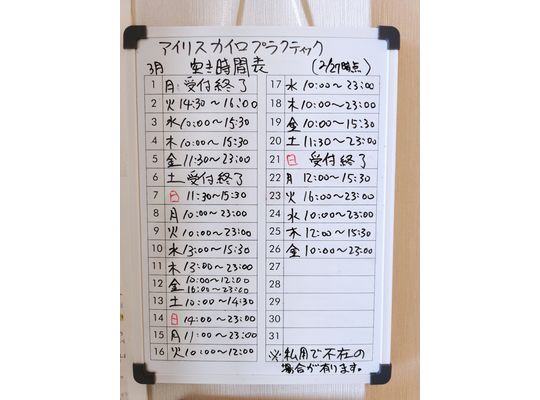 アイリスカイロプラクティック
3月 空き時間表 (2/27時点)
1 月 受付終了
2 火 14:30〜16:00
3 水 10:00〜15:30
4 木 10:00〜15:30
5 金 11:30〜23:00
6 土 受付終了
7 日 11:30〜15:30
8 月 10:00〜23:00
9 火 10:00〜23:00
10 水 13:00〜15:30
11 木 13:00〜23:00
12 金 10:00〜12:00
16:00〜23:00
13 土 10:00〜14:30
14 日 14:00〜23:00
15 月 11:00〜23:00
16 火 10:00〜12:00
17 水 10:00〜23:00
18 木 10:00〜23:00
19 金 10:00〜15:30
20 土 11:30〜23:00
21 日 受付終了
22 月 12:00〜15:30
23 火 16:00〜23:00
24 水 10:00〜23:00
25 木 12:00〜15:30
26 金 10:00〜23:00
27
28
29
30
31
※私用で不在の
場合が有ります。